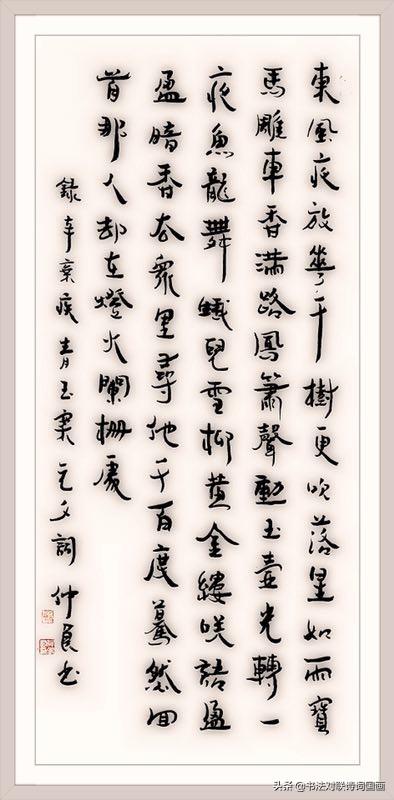 東風夜放華千樹更吹落星如雨寶
馬雕車香滿路鳳簫聲動玉壺光轉一
夜魚龍舞蛾兒雪柳黃金縷咲語盈
盈暗香去眾里尋他千百度驀然回
首那人却在燈火闌栅處
錄辛棄疾青玉案元夕詞仲良书
头条 @书法对联诗词国画